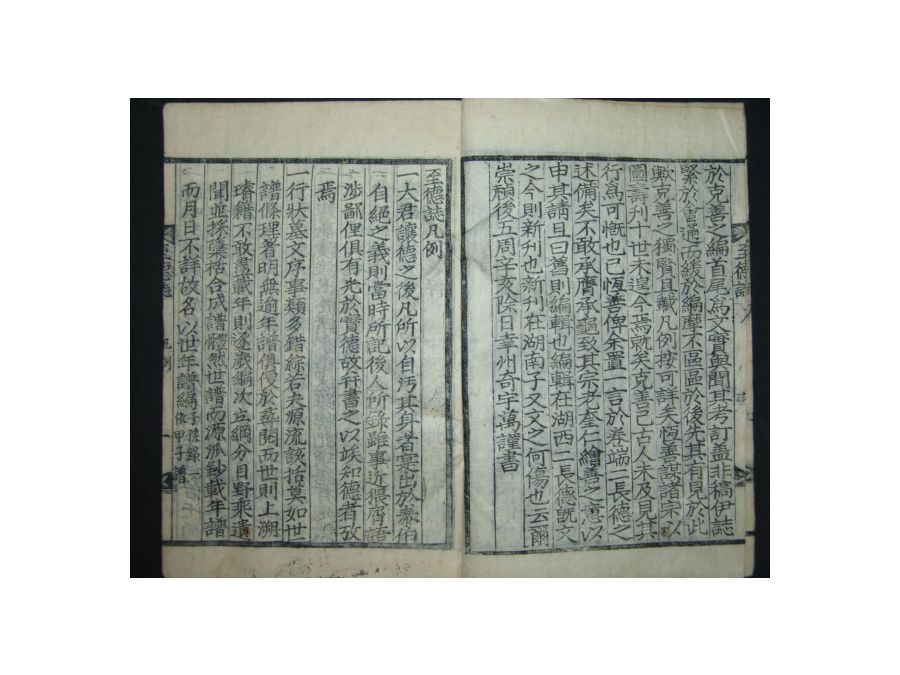 於克善之編首尾爲文實與聞其考訂盖非稿伊誌
緊於書通而緩於編摩不區區於後先其有見於此
歟克善之獨賢具載凡例按可詳矣恆善謀諸宗以
圖壽刊十世未遑今焉就矣克善已古人未及見其
行爲可慨也已恆善俾余置一言於卷端二長德之
述備矣不敢承膺承龥致其宗老奎仁繪善之意以
申其請且曰舊則編輯也編輯在湖西二長德旣文
之今則新刊也新刊在湖南子又文之何傷也云爾
崇禎後五周辛亥除日幸州奇宇萬謹書
至德誌
至德誌凡例
一大君讓德之後凡所以自汚其身者寔出於泰伯
自絕之義則當時所記後人所錄雖事近猥屑語
涉鄙俚俱有光於實德故幷書之以竢知德者攷
焉
一行狀墓文序事類多錯綜若夫源流該括莫如世
譜條理著明無逾年譜俱侵於蓽閟而世則上溯
璿籍不敢盡載年則逐歲編次立綱分目野乘遺
聞並採檃栝合成譜體然世譜而源派鈔載年譜
而月日不詳故名以世年譜編
子孫錄
依甲子譜
至德誌
凡例
一